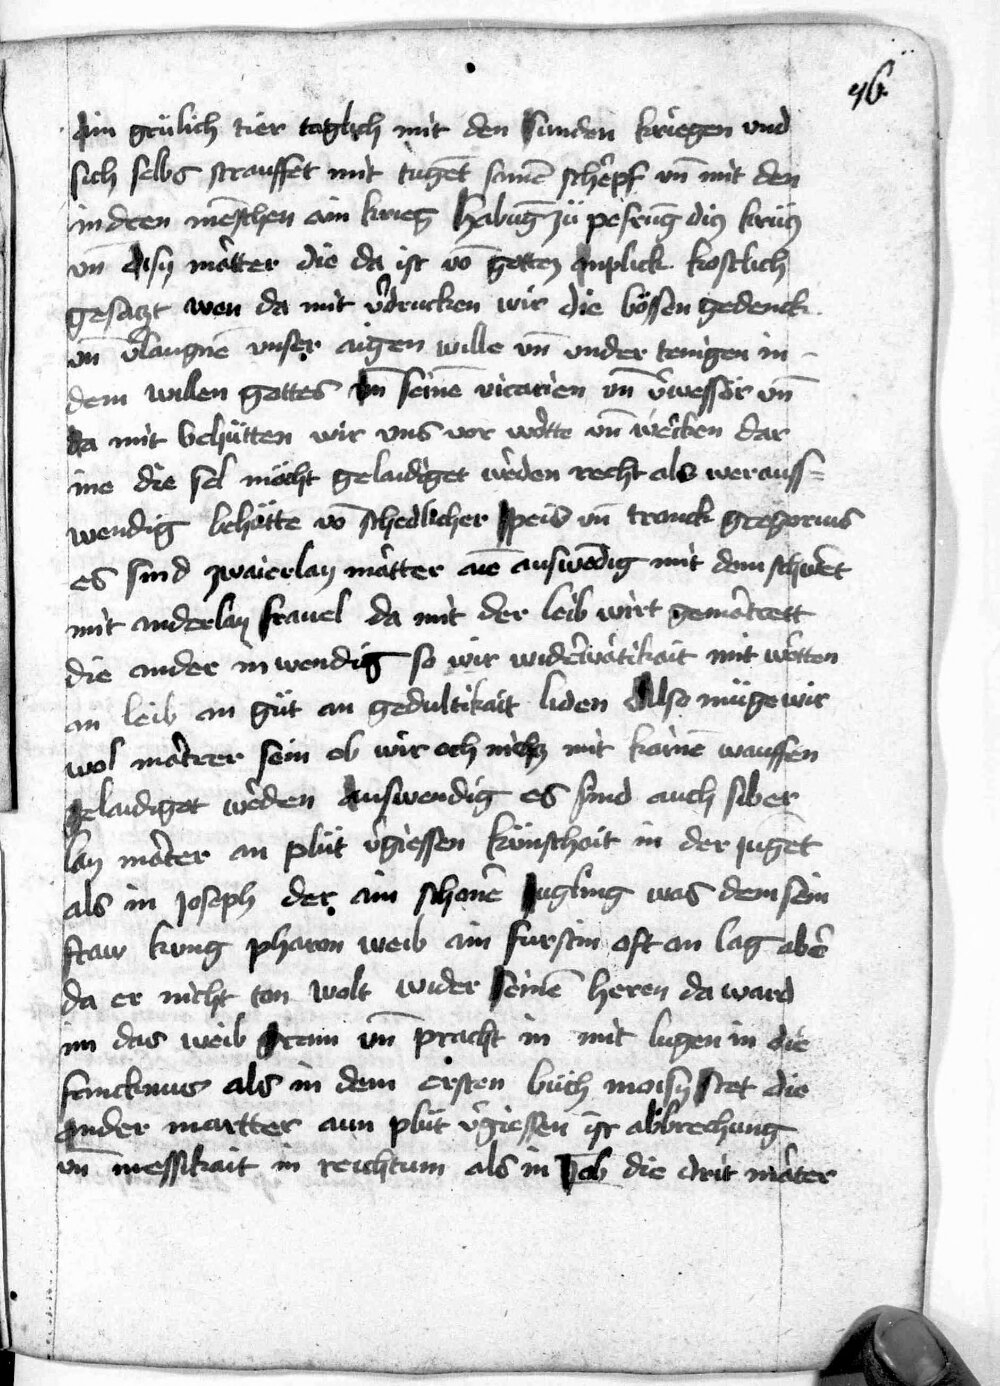 46
Ain grülich tier taglich mit den sunden kriegen vnd
sich selbs strauffet mit tugēt sainē schepf vn̄ mit den
indren mēschen ain krieg habūg zü pesrūg diß krütz
vn̄ disy mātter die da ist vō gottez anplick kostlich
gesatzt wen da mit v̄drucken wir die bössen gedenck
vn̄ v̄laugnē vnser aigen wille vn̄ vnder tenigen in
dem willen gottes vn̄ seinē vicarien vn̄ v̄wessör vn̄
da mit behütten wir vns vor wōtte vn̄ wēcken dar
ine die sel möcht gelaidiget wēden recht als wer auss=
wendig behütte vō schedlicher speis vn̄ tranck gregorius
es sind zwaierlay mātter aīe auswēdig mit dem schwēt
mit anderlay frauel da mit der leib wirt gemātrett
die ander inwendig so wir widēwātikait mit wōtten
an leib an güt an gedultikait liden Also müge wir
wol mātrer sein ob wir och nichtz mit kainē wauffen
gelaidiget wēden Auswendig es sind auch siber
lay māter an plüt v̄giessen künschait in der jugēt
als in Joseph der ain schonē Jugling was dem sein
fraw kung pharon weib ain furstin oft an lag abē
da er nicht ton wolt wider seinē heren da ward
im das weib gram vn̄ pracht in mit lugen in die
fancknus als in dem ersten büch moisy stet die
ander martter aun plüt v̄giessen ist abbrechung
vn̄ messikait in reichtum als in Job die drit māter